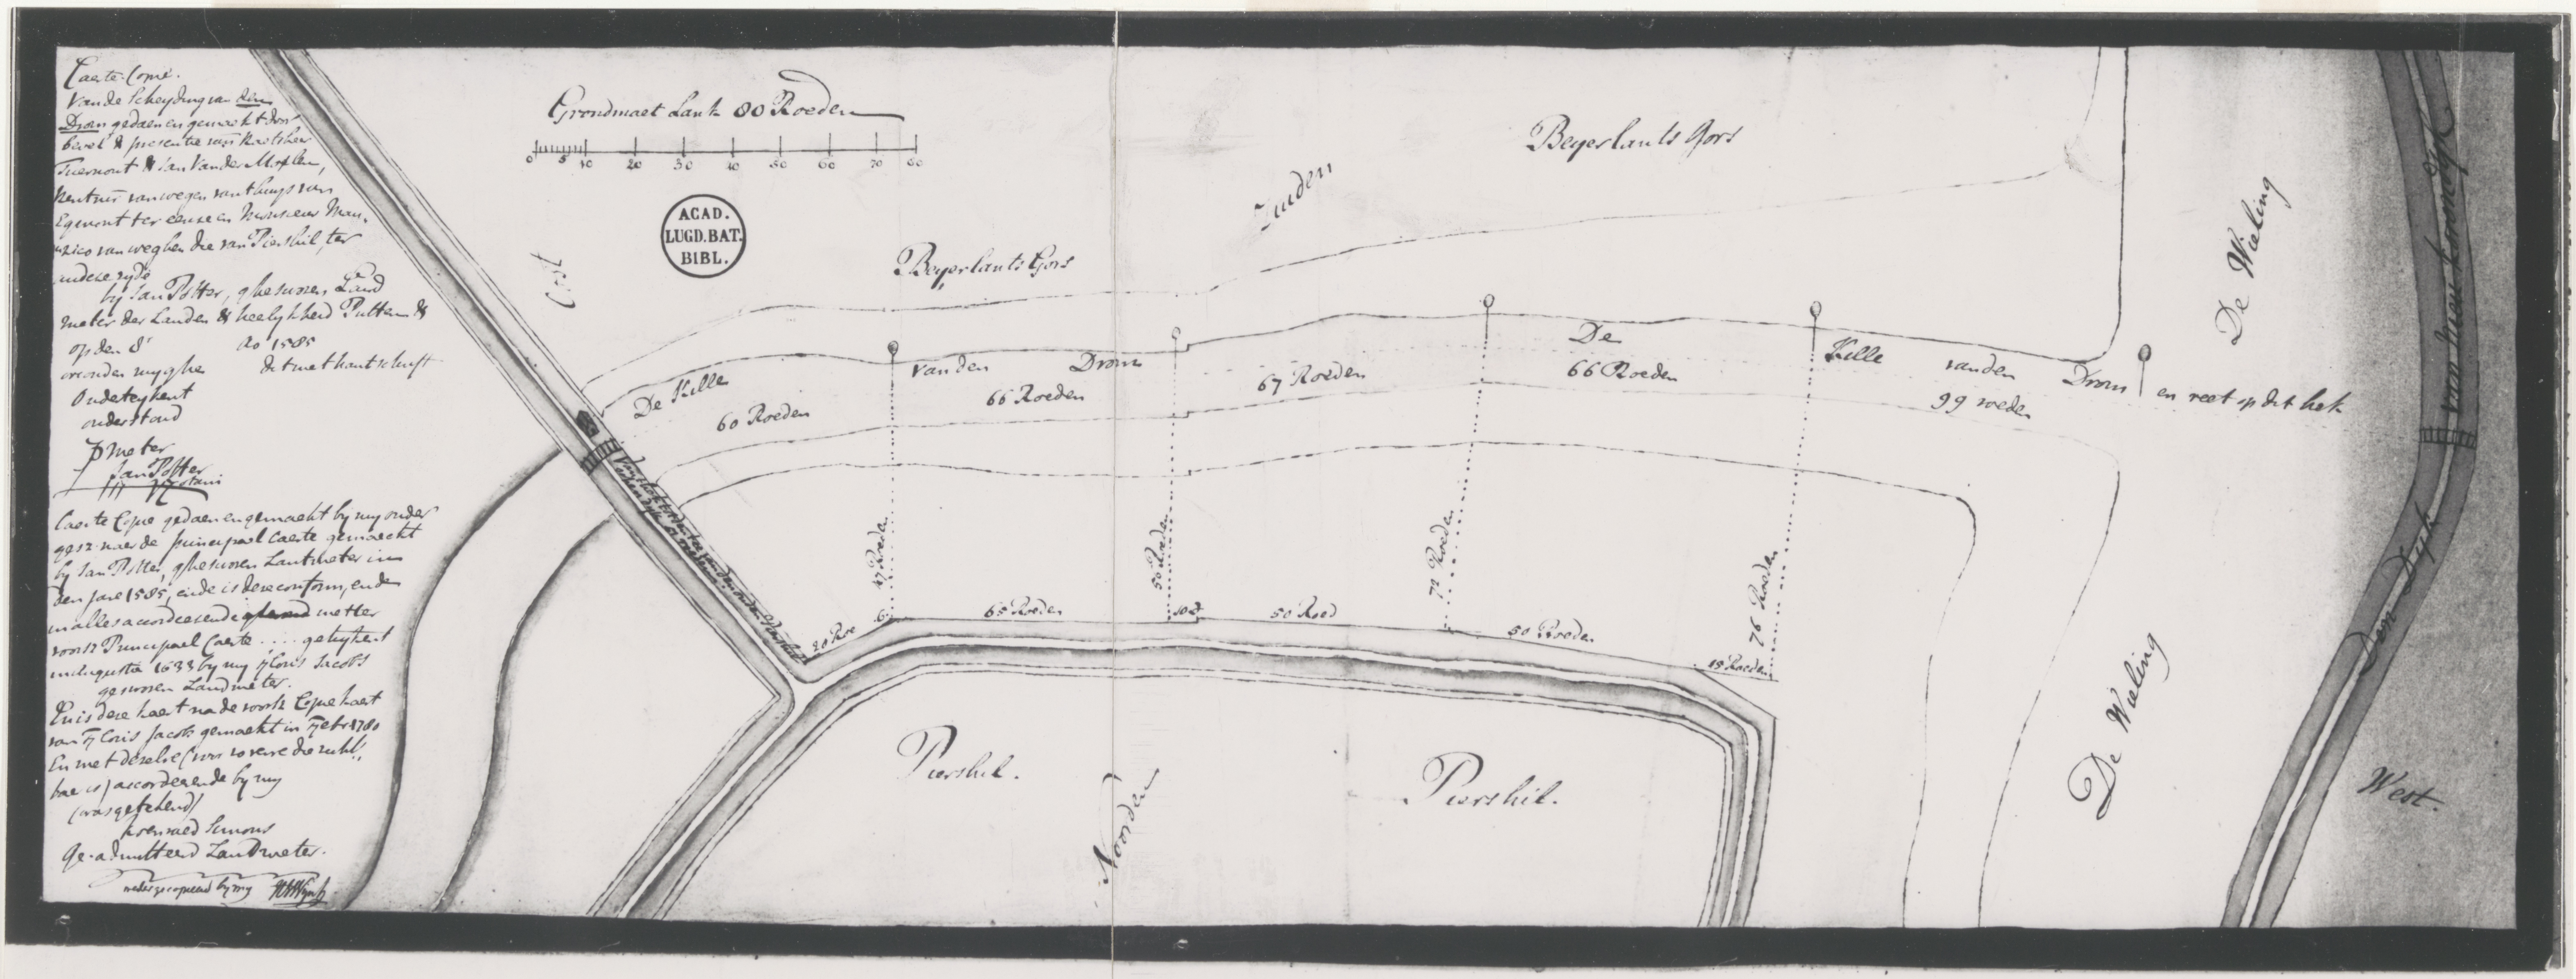 Caerte Copie.
Van de Scheyding van den
Drom gedaen en gemaeckt door
bevel & presentie van Raetsheer
Tuernout & Jan Vander Meslen,
Rentmr van wegen van thuys van
Egmont ter eenre en Monsieur Mau-
van weghen die van Piershil, ter
andere zyde
by Jan Potter, gheswooren Land
meter der Landen & heelykheid Putten &
op den 8 Ao 1585
oirconden myn ghe dit met hantschrift
Ondeteykent
onderstond
p meter
Jan Potter
Caerte Copie gedaen en gemaeckt by my onder
gesz naer de principael Caerte gemaeckt
by Jan Potter, gheswooren Lantmeter inn
den jare 1585, ende is dese conform, ende
in alles accorderende metter
voorsz Principael Caerte .... geteykent
in Augusto 1633 by my Floris Jacobs
geswooren Landmeter.
En is dese kaert na de voorsz Copie kaert
van Floris Jacobs gemaeckt in Febr 1780
En met deselve (voor soverre die
baer is) accorderende by my
(was getekend)
Koenraed Simons
Ge-admitteerd Landmeter.
weder gecopieerd by my
Grondmaet Lank 80 Roeden
0 5 10 20 30 40 50 60 70 80
ACAD.
LUGD.BAT.
BIBL.
Oost
Zuiden
Beyerlants Gors
Beyerlants Gors
De Kille vanden Drom
De Kille vanden Drom en reet op dit hek
60 Roeden
66 Roeden
67 Roeden
66 Roeden
99 roeden
47 Roeden
50 Roeden
72 Roeden
76 Roeden
20 Roe
6
65 Roeden
10
50 Roed
50 Roeden
15 Roeden
Piershil.
Piershil.
Noorden
De Wieling
De Wieling
Den Dyk van
West.